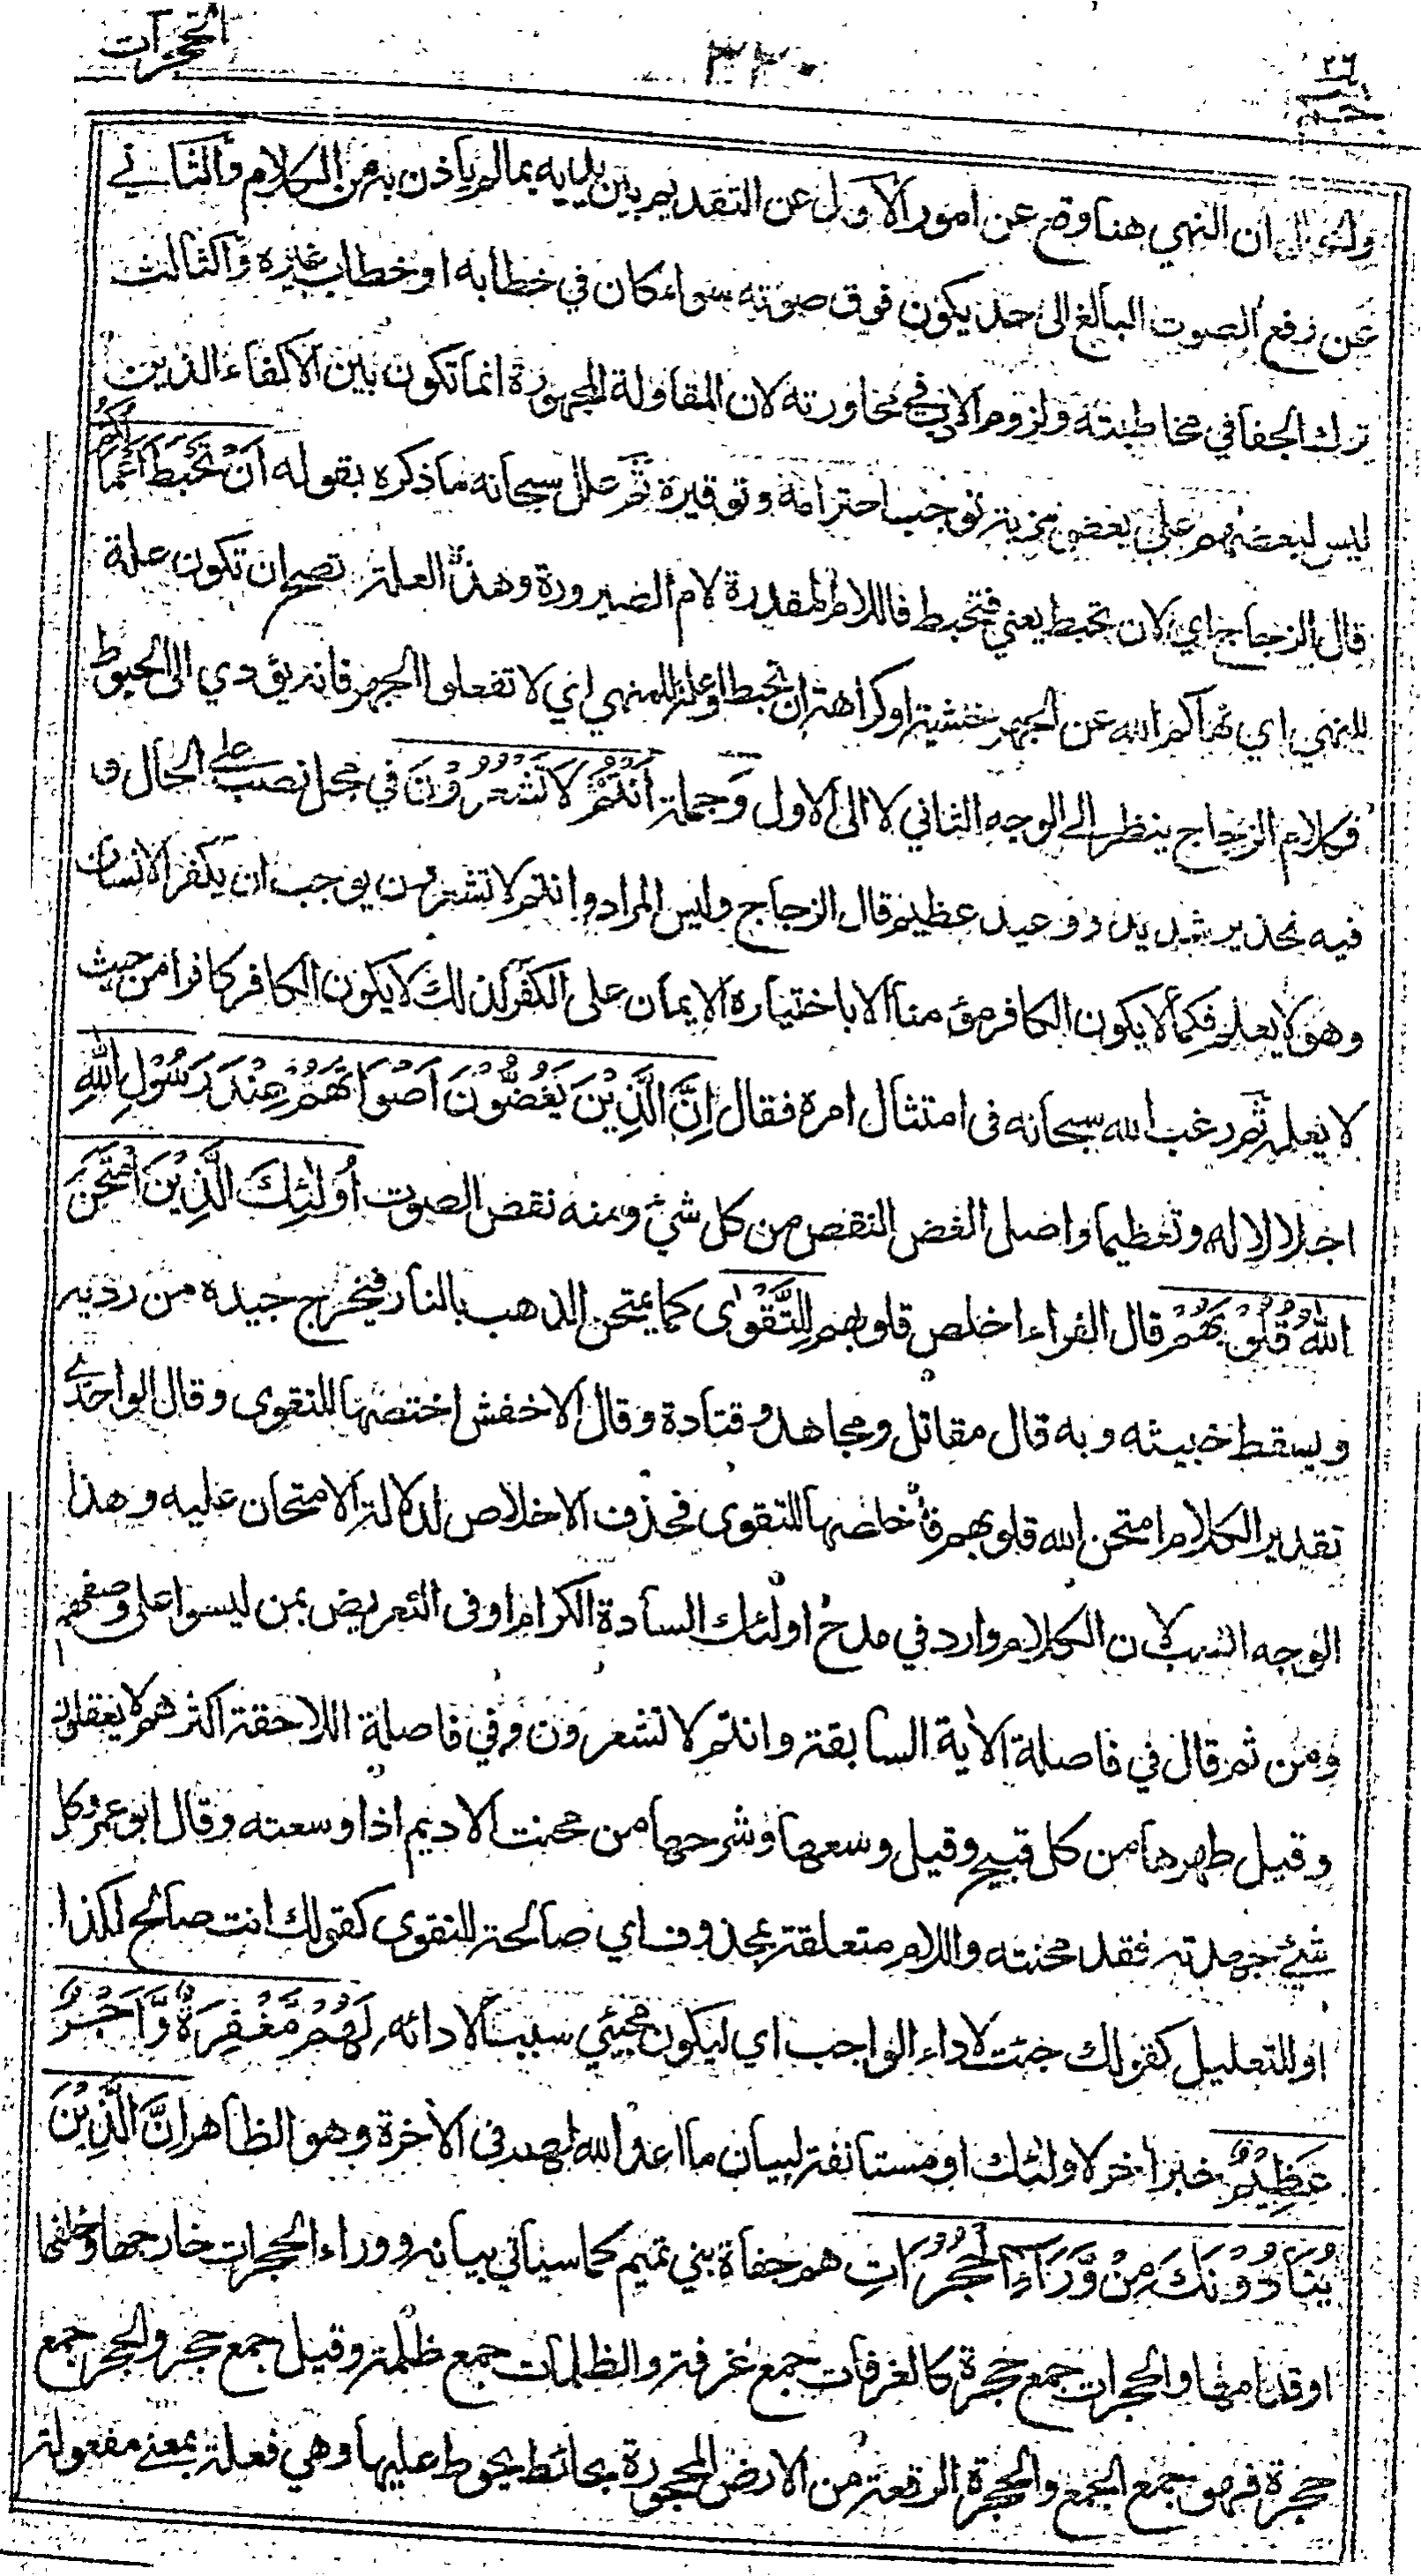 الحجرات
٣٣٠
٢٦
حم
ان النهي هنا وقع عن امور الاول عن التقديم بين يديه بما لم ياذن به من الكلام والثاني
عن رفع الصوت البالغ الى حد يكون فوق صوته سواء كان في خطابه او خطاب غيره والثالث
ترك الجفا في مخاطبته ولزوم الادب في محاورته لان المقاولة المجهورة انما تكون بين الاكفاء الذين
ليس لبعضهم على بعض مزية توجب احترامه وتوقيره ثم علل سبحانه ما ذكره بقوله اَنْ تَحْبَطَ اَعْمَالُكُمْ
قال الزجاج اي لان تحبط يعني فتحبط فاللام المقدرة لام الصيرورة وهذه العلة تصح ان تكون علة
للنهي اي نهاكم الله عن الجهر خشية او كراهة ان تحبط او علة للمنهي اي لا تفعلوا الجهر فانه يؤدي الى الحبوط
فكلام الزجاج ينظر الى الوجه الثاني لا الى الاول وَجملة اَنْتُمْ لَا تَشْعُرُوْنَ في محل نصب على الحال و
فيه تحذير شديد ووعيد عظيم قال الزجاج وليس المراد وانتم لا تشعرون يوجب ان يكفر الانسان
وهو لا يعلم فكما لا يكون الكافر مؤمنا الا باختياره الايمان على الكفر لذلك لا يكون الكافر كافرا من حيث
لا يعلم ثم رغب الله سبحانه فى امتثال امره فقال اِنَّ الَّذِيْنَ يَغُضُّوْنَ اَصْوَاتَهُمْ عِنْدَ رَسُوْلِ اللّٰهِ
اجلالا له وتعظيما واصل الغض النقص من كل شيء ومنه نقص الصوت اُولٰئِكَ الَّذِيْنَ امْتَحَنَ
اللّٰهُ قُلُوْبَهُمْ قال الفراء اخلص قلوبهم لِلتَّقْوٰى كما يمتحن الذهب بالنار فيخرج جيده من رديه
ويسقط خبيثه وبه قال مقاتل ومجاهد وقتادة وقال الاخفش اختصها للتقوى وقال الواحدي
تقدير الكلام امتحن الله قلوبهم فأخلصها للتقوى فحذف الاخلاص لدلالة الامتحان عليه وهذا
الوجه انسب لان الكلام وارد في مدح اولئك السادة الكرام او فى التعريض بمن ليسوا على وصفهم
ومن ثم قال في فاصلة الاية السابقة وانتم لا تشعرون وفي فاصلة اللاحقة اكثرهم لا يعقلون
وقيل طهرها من كل قبيح وقيل وسعها وشرحها من محنت الاديم اذا وسعته وقال ابو عمرو كل
شيء جهدته فقد محنته واللام متعلقة بمحذوف اي صالحة للتقوى كقولك انت صالح لكذا
او للتعليل كقولك جئت لاداء الواجب اي ليكون مجيئي سببا لادائه لَهُمْ مَّغْفِرَةٌ وَّاَجْرٌ
عَظِيْمٌ خبر اخر لاولئك او مستانفة لبيان ما اعد الله لهم فى الاخرة وهو الظاهر اِنَّ الَّذِيْنَ
يُنَادُوْنَكَ مِنْ وَّرَآءِ الْحُجُرَاتِ هم جفاة بني تميم كما سياتي بيانه ووراء الحجرات خارجها وخلفها
او قدامها والحجرات جمع حجرة كالغرفات جمع غرفة والظلمات جمع ظلمة وقيل جمع حجر والحجر جمع
حجرة فهو جمع الجمع والحجرة الرقعة من الارض المحجورة بحائط يحوط عليها وهي فعلة بمعنى مفعولة